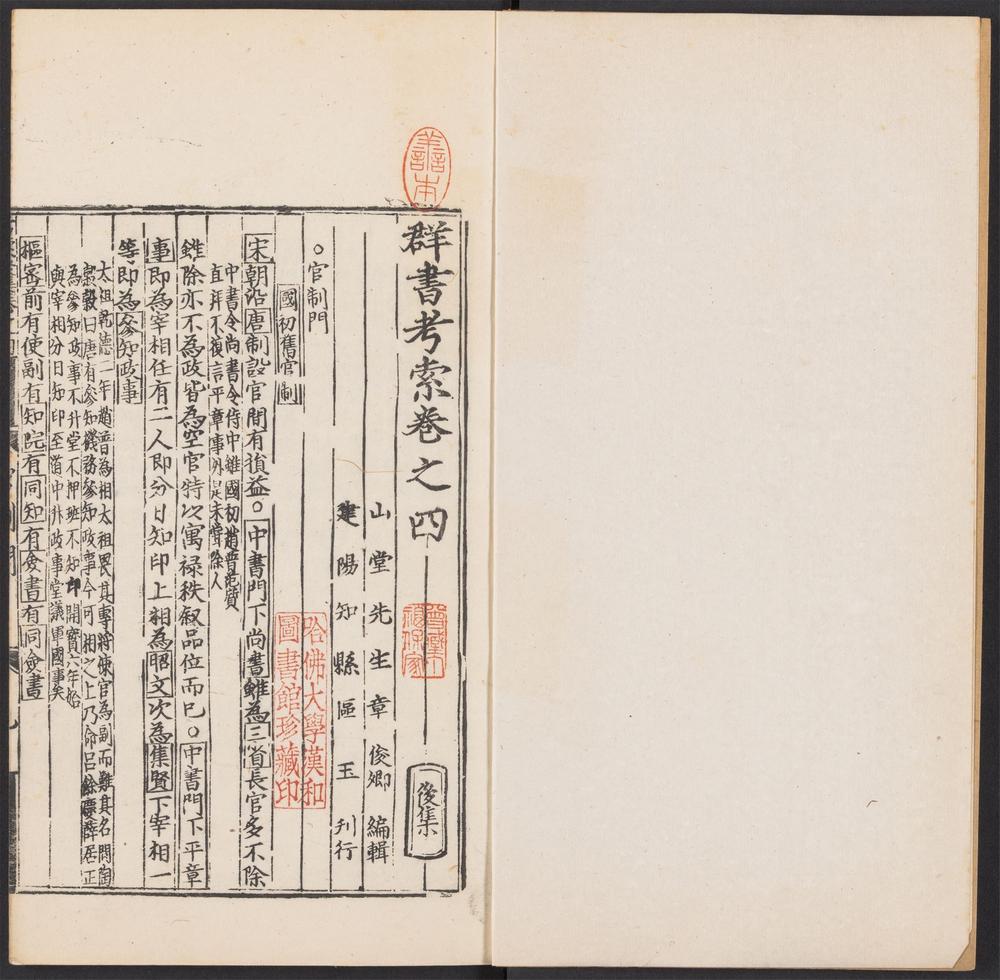 群書考索卷之四
後集
山堂先生章俊卿編輯
建陽知縣區玉刊行
○官制門
國初舊官制
宋朝沿唐制設官間有損益○中書門下尚書雖為三省長官多不除
中書令尚書令侍中雖國初趙普范質
直拜不復言平章事外是未嘗除人
雖除亦不為政皆為空官特以寓祿秩叙品位而已○中書門下平章
事即為宰相任有二人即分日知印上相為昭文次為集賢下宰相一
等即為參知政事
太祖乾德二年趙普為相太祖畏其專將除官為副而難其名問陶
穀穀曰唐有參知機務參知政事今可相之上乃命呂餘慶薛居正
為參知政事不升堂不押班不知印開寶六年始
與宰相分日知印至道中升政事堂議軍國事矣
樞密前有使副有知院有同知有僉書有同僉書
善本
哈佛大學漢和
圖書館珍藏印